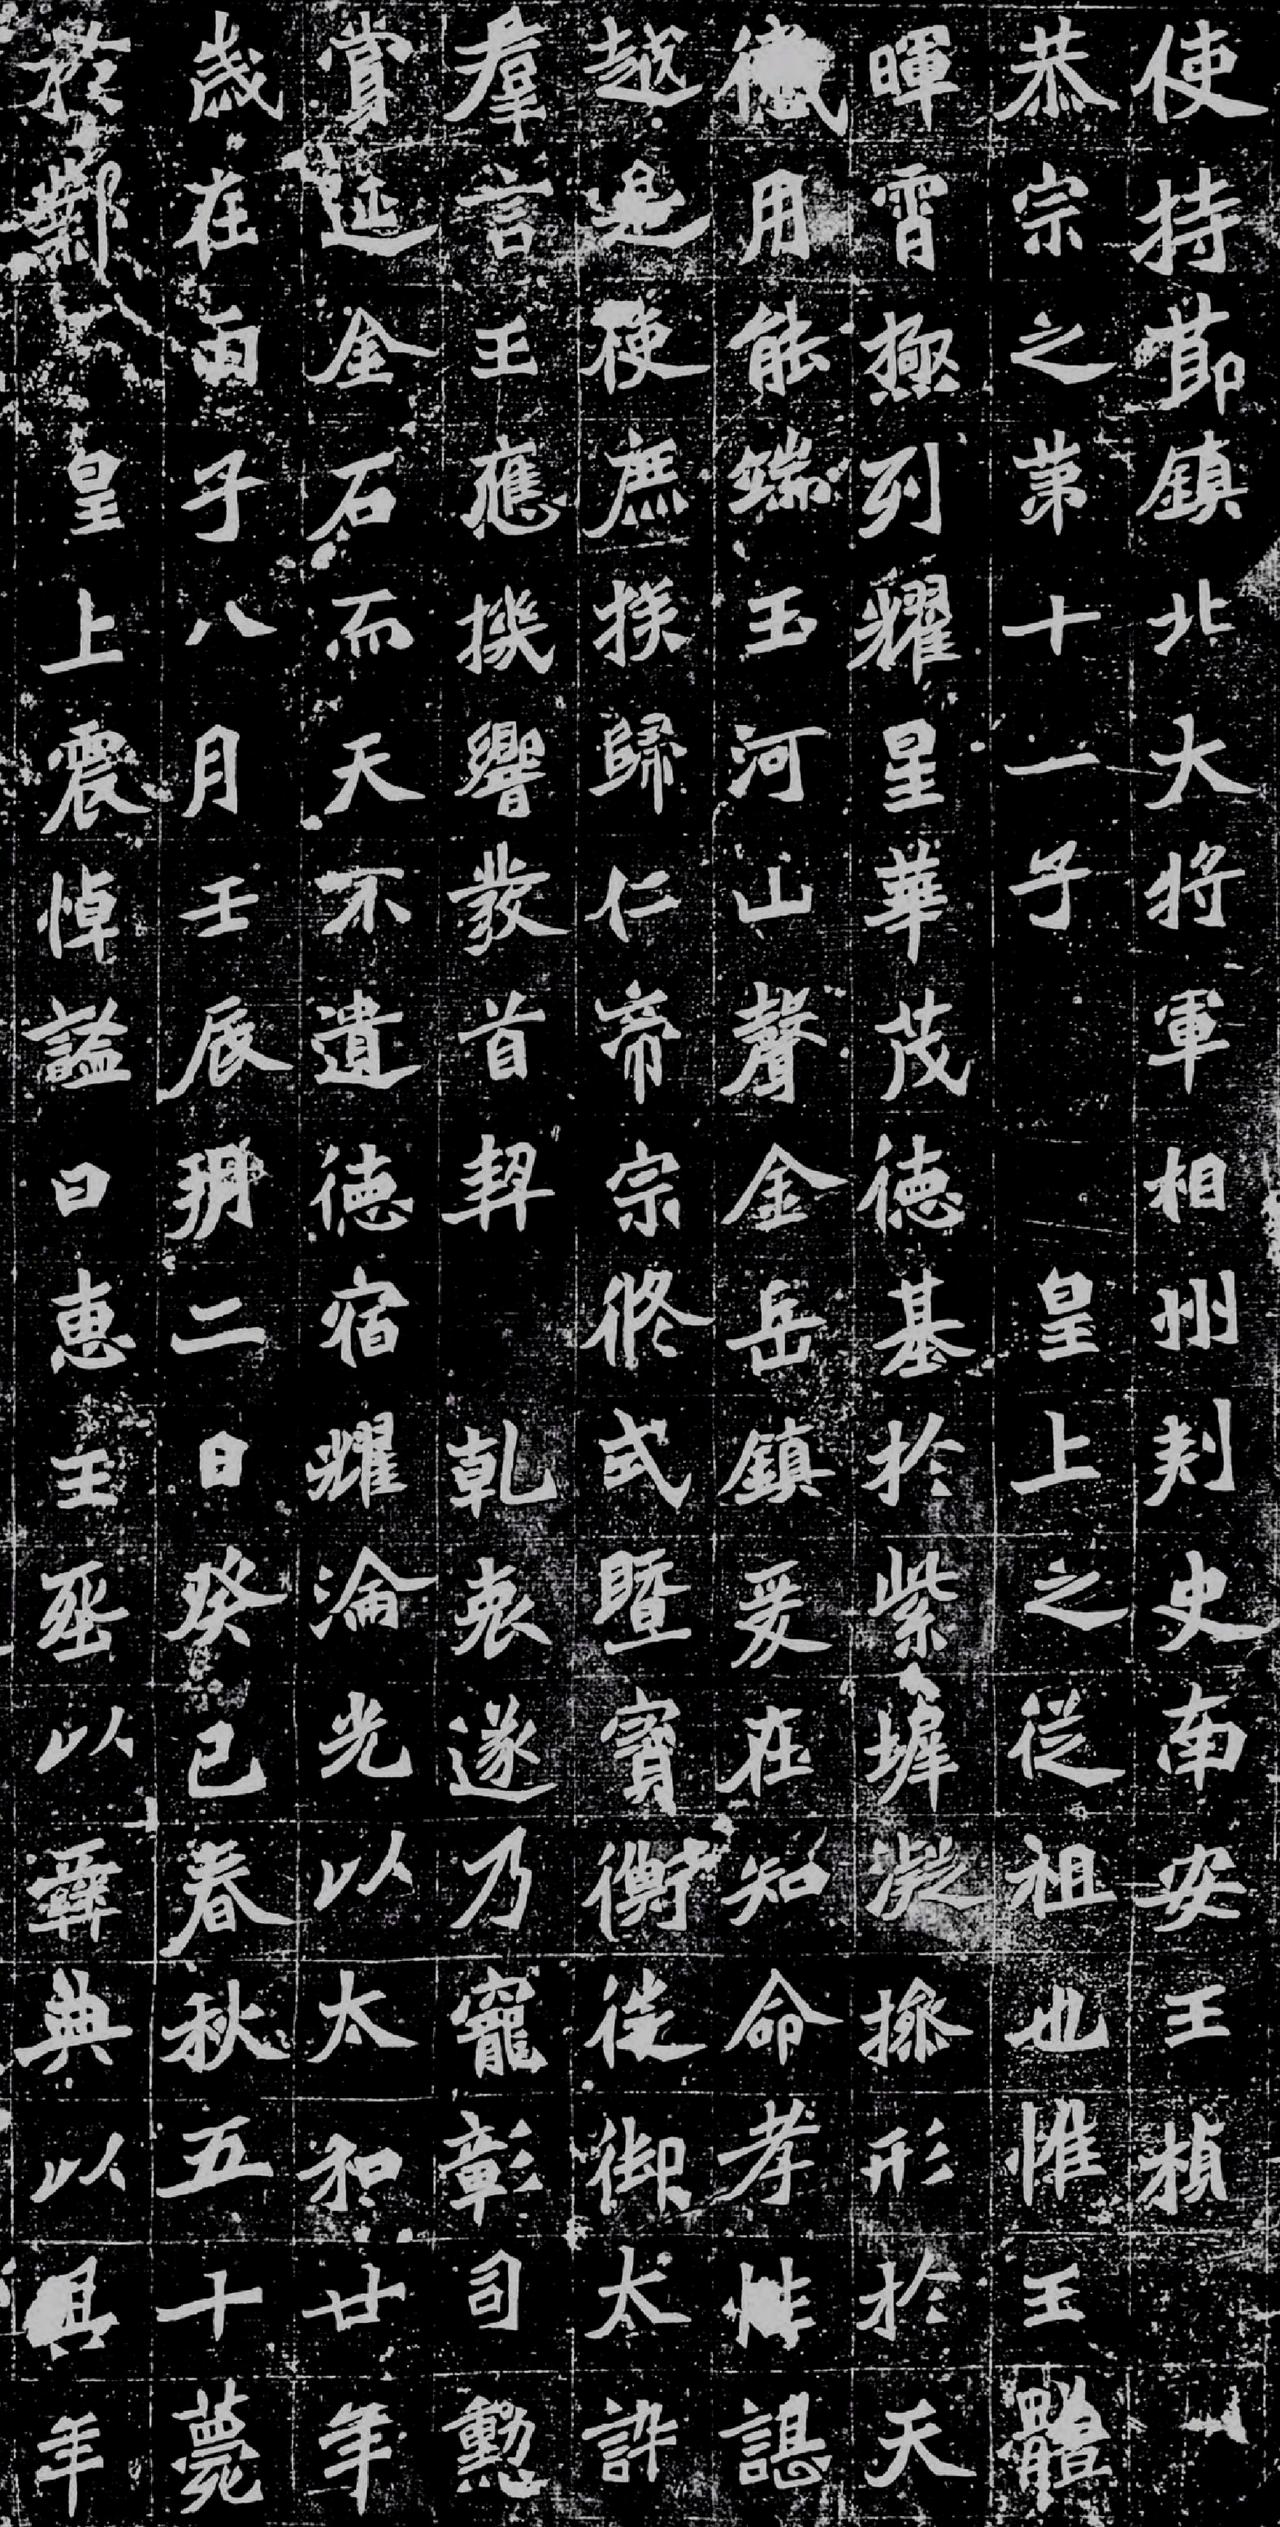 使持節鎮北大將軍相州刾史南安王楨
恭宗之第十一子皇上之從祖也惟王體
暉霄極列耀星華茂德基於紫墀凝操形於天
儀用能端玉河山聲金岳鎮爰在知命孝性諶
越是使庶族歸仁帝宗攸式暨寶衡徙御太訊
羣言王應機響發首契乾衷遂乃寵彰司勳
賞延金石而天不遺德宿耀淪光以太和廿年
歲在丙子八月壬辰朔二日癸巳春秋五十薨
於鄴皇上震悼謚曰惠王塟以彝典以其年